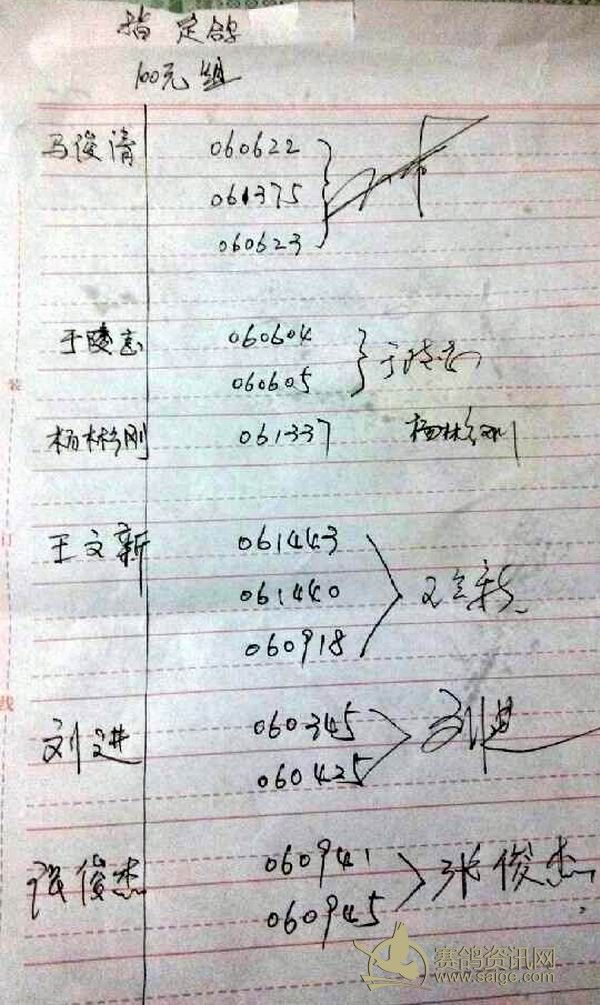 指定鸽
100元组
马俊清 060622
061375
060623
于陵志 060604 于陵志
060605
杨彬刚 061337 杨彬刚
王文新 061443
061440 王文新
060918
刘进 060345 刘进
060425
张俊杰 060941 张俊杰
060945
装
订
线
赛鸽资讯网
www.saige.com